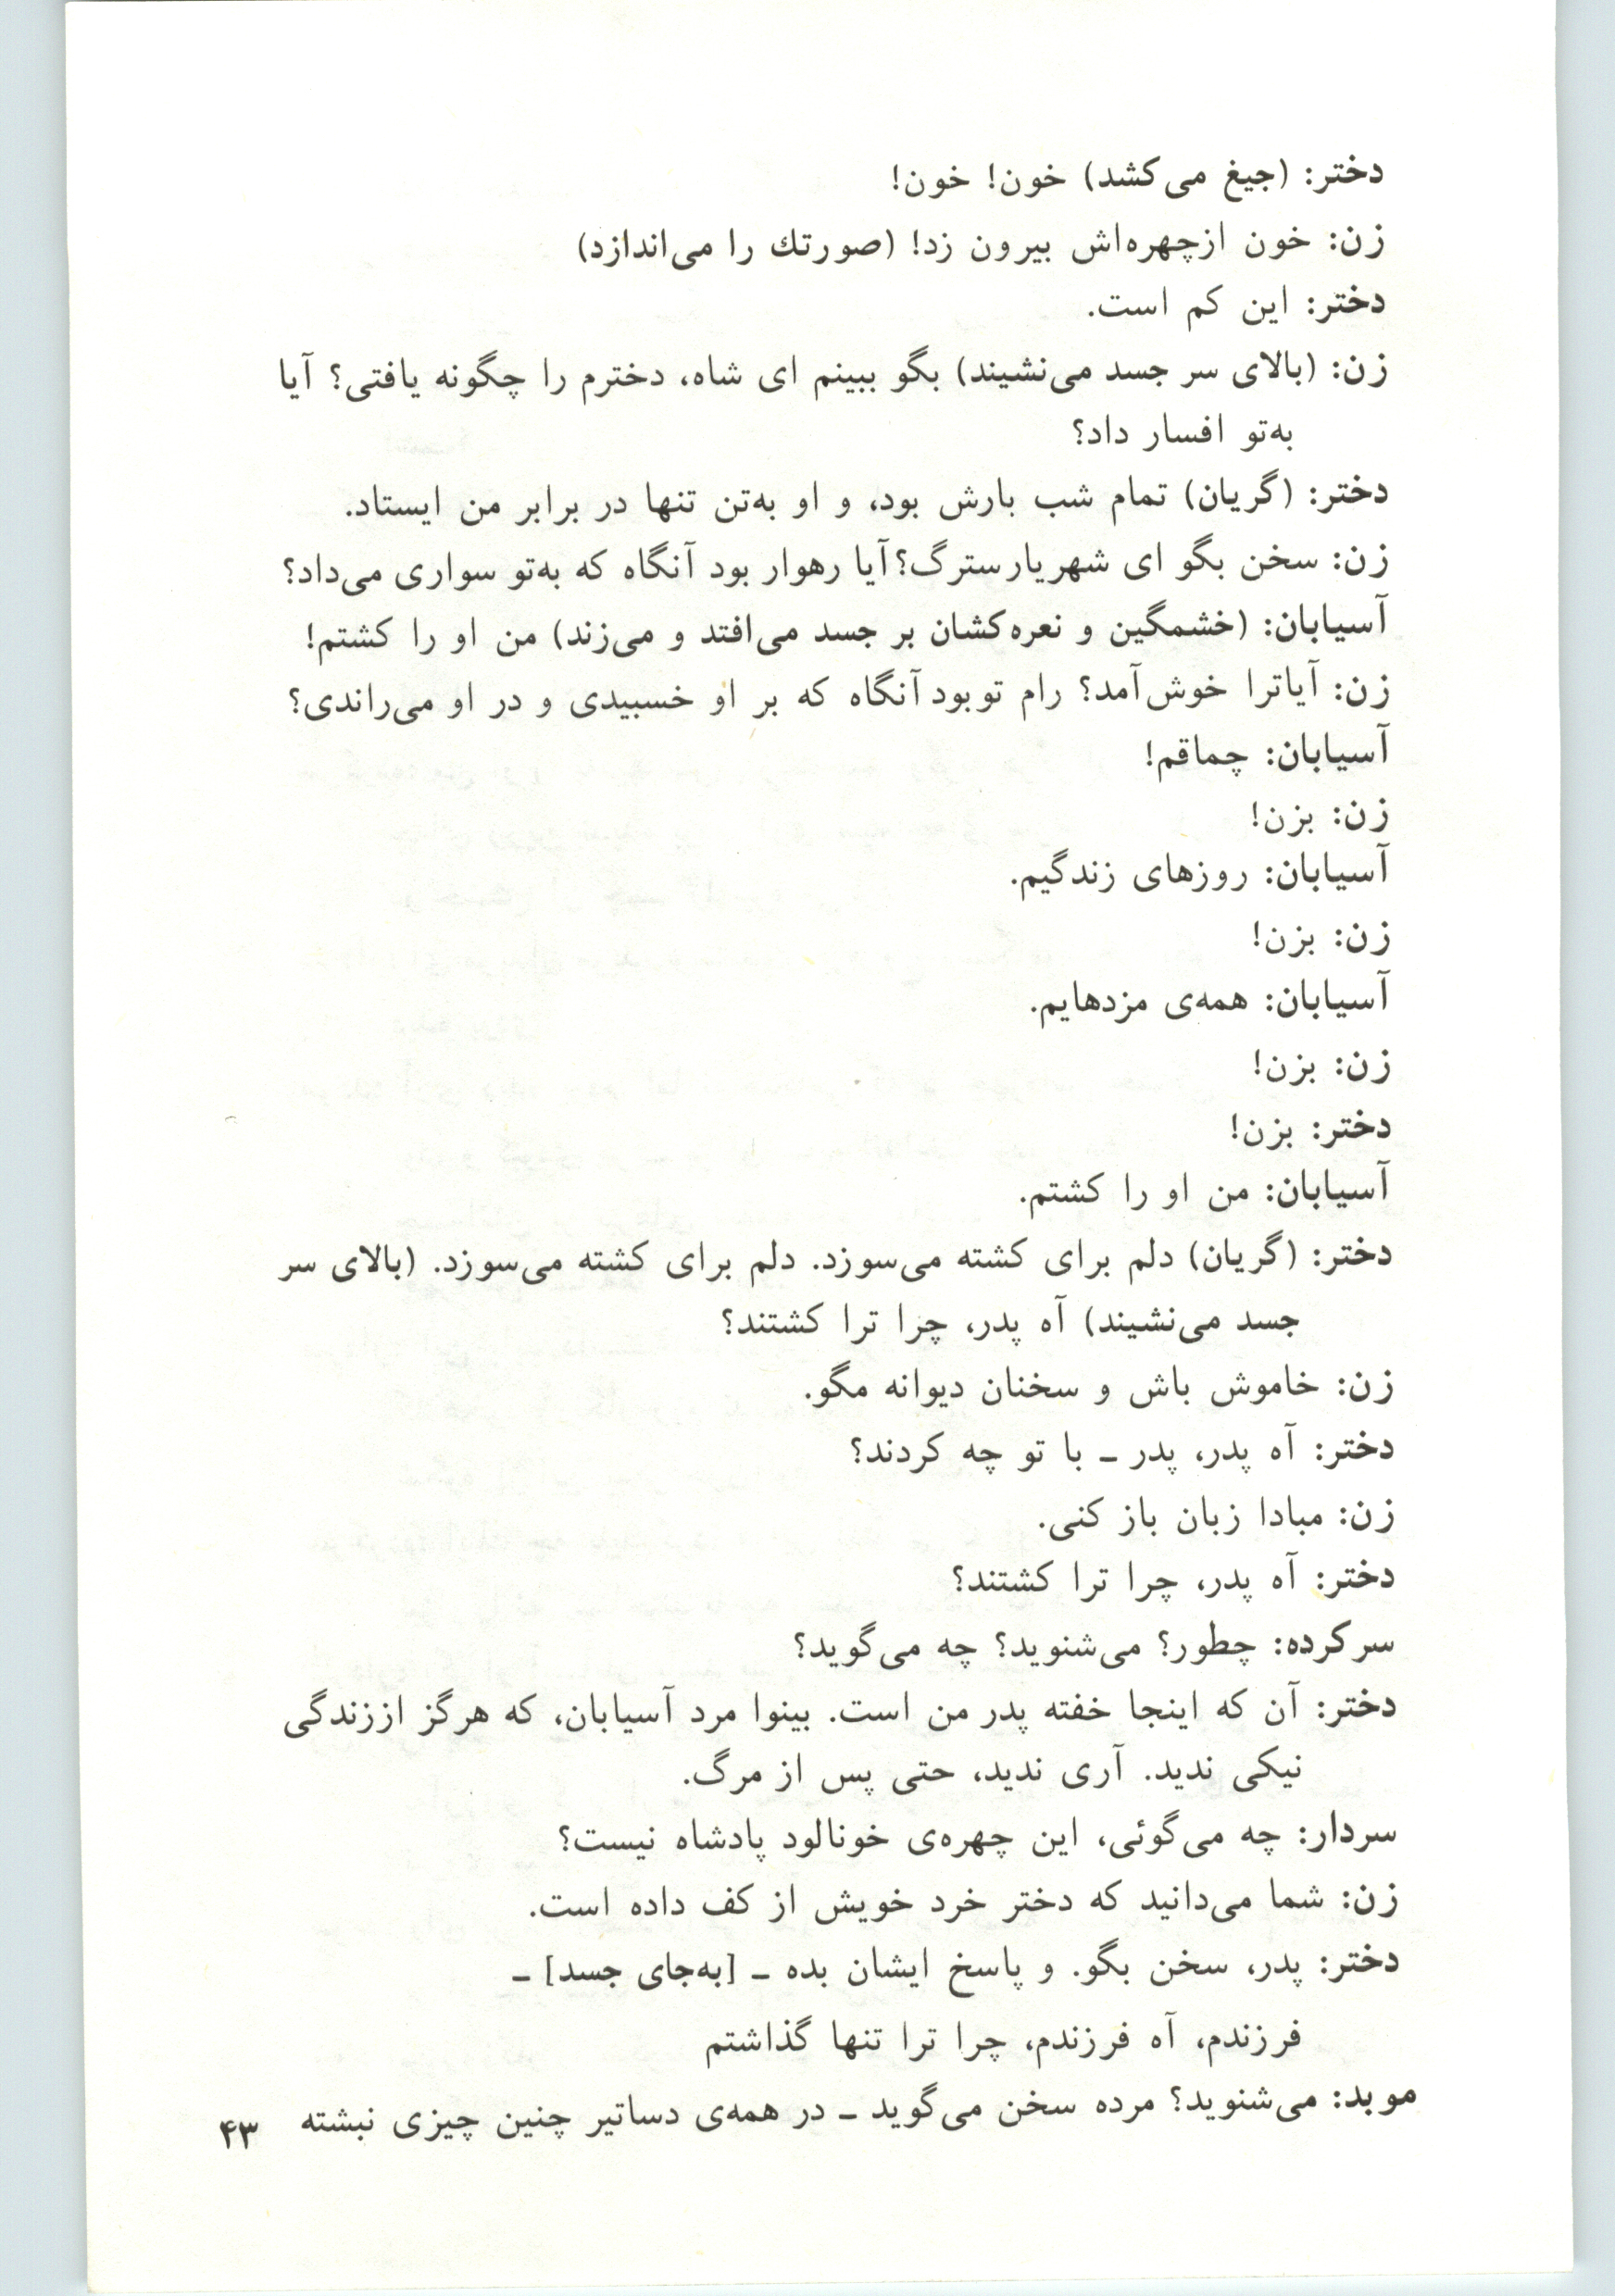 دختر: (جیغ می‌کشد) خون! خون!
زن: خون ازچهره‌اش بیرون زد! (صورتك را می‌اندازد)
دختر: این کم است.
زن: (بالای سر جسد می‌نشیند) بگو ببینم ای شاه، دخترم را چگونه یافتی؟ آیا
به‌تو افسار داد؟
دختر: (گریان) تمام شب بارش بود، و او به‌تن تنها در برابر من ایستاد.
زن: سخن بگو ای شهریارسترگ؟ آیا رهوار بود آنگاه که به‌تو سواری می‌داد؟
آسیابان: (خشمگین و نعره‌کشان بر جسد می‌افتد و می‌زند) من او را کشتم!
زن: آیاترا خوش‌آمد؟ رام توبود آنگاه که بر او خسبیدی و در او می‌راندی؟
آسیابان: چماقم!
زن: بزن!
آسیابان: روزهای زندگیم.
زن: بزن!
آسیابان: همه‌ی مزدهایم.
زن: بزن!
دختر: بزن!
آسیابان: من او را کشتم.
دختر: (گریان) دلم برای کشته می‌سوزد. دلم برای کشته می‌سوزد. (بالای سر
جسد می‌نشیند) آه پدر، چرا ترا کشتند؟
زن: خاموش باش و سخنان دیوانه مگو.
دختر: آه پدر، پدر ــ با تو چه کردند؟
زن: مبادا زبان باز کنی.
دختر: آه پدر، چرا ترا کشتند؟
سرکرده: چطور؟ می‌شنوید؟ چه می‌گوید؟
دختر: آن که اینجا خفته پدر من است. بینوا مرد آسیابان، که هرگز اززندگی
نیکی ندید. آری ندید، حتی پس از مرگ.
سردار: چه می‌گوئی، این چهره‌ی خونالود پادشاه نیست؟
زن: شما می‌دانید که دختر خرد خویش از کف داده است.
دختر: پدر، سخن بگو. و پاسخ ایشان بده ــ [به‌جای جسد] ــ
فرزندم، آه فرزندم، چرا ترا تنها گذاشتم
موبد: می‌شنوید؟ مرده سخن می‌گوید ــ در همه‌ی دساتیر چنین چیزی نبشته
۴۳